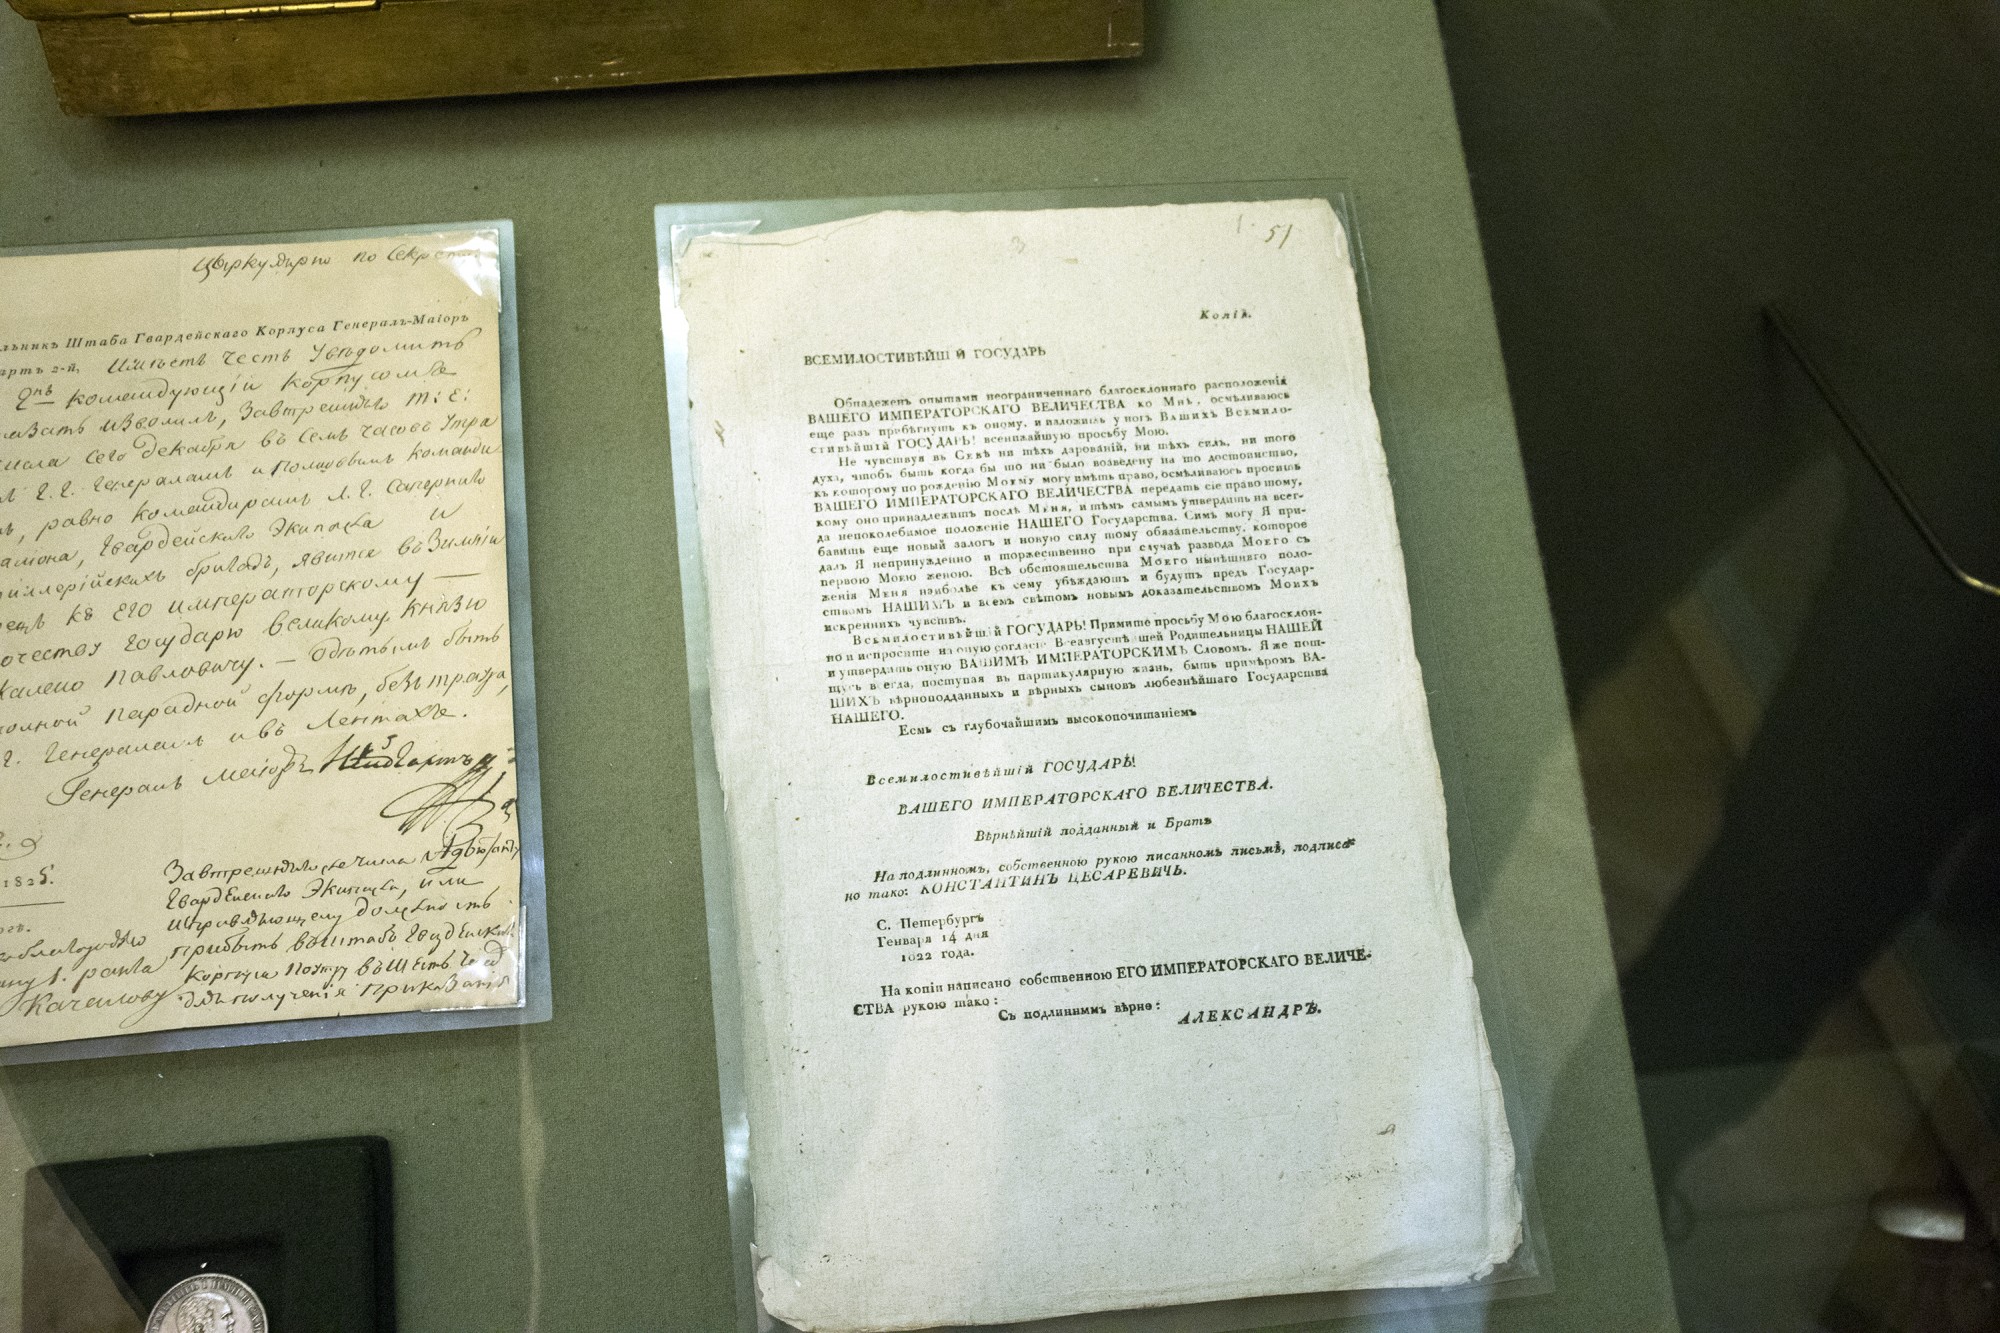 Циркулярно по Секрету
Штаба Гвардейскаго Корпуса Генералъ-Маіоръ
2-й, имѣетъ честь увѣдомить
командующій Корпусомъ
изволилъ, завтрешняго
сего Декабря въ семь часовъ утра
Г.г. Генераламъ и Полковымъ
равно Командирамъ Л. Г. Сапернаго
Гвардейскаго Экипажа и
бригадъ, явится въ Зимній
къ ЕГО императорскому —
Государю великому Князю
Павловичу. — Одѣтымъ быть
парадной формѣ, безъ траура,
Генераламъ и въ Лентахъ.
Генералъ маіоръ
1825.
Завтрешняго же числа
Гвардейскаго Экипажа, или
должность
прибыть въ Штабъ
1. ранга
Корпуса поутру въ шесть
Качалову для полученія приказанія
51
Копія.
ВСЕМИЛОСТИВѢЙШІЙ ГОСУДАРЬ
Обнадеженъ опытами неограниченнаго благосклоннаго расположенія
ВАШЕГО ИМПЕРАТОРСКАГО ВЕЛИЧЕСТВА ко Мнѣ, осмѣливаюсь
еще разъ прибѣгнуть къ оному, и изложить у ногъ Вашихъ Всемило-
стивѣйшій ГОСУДАРЬ! всенижайшую просьбу Мою.
Не чувствуя въ Себѣ ни тѣхъ дарованій, ни тѣхъ силъ, ни того
духа, чтобъ быть когда бы то ни было возведену на то достоинство,
къ которому по рожденію Моему могу имѣть право, осмѣливаюсь просить
ВАШЕГО ИМПЕРАТОРСКАГО ВЕЛИЧЕСТВА передать сіе право тому,
кому оно принадлежитъ послѣ Меня, и тѣмъ самымъ утвердить на всег-
да непоколебимое положеніе НАШЕГО Государства. Симъ могу Я при-
бавить еще новый залогъ и новую силу тому обязательству, которое
далъ Я непринужденно и торжественно при случаѣ развода Моего съ
первою Моею женою. Всѣ обстоятельства Моего нынѣшняго поло-
женія Меня наиболѣе къ сему убѣждаютъ и будутъ предъ Государ-
ствомъ НАШИМЪ и всемъ свѣтомъ новымъ доказательствомъ Моихъ
искреннихъ чувствъ.
Всемилостивѣйшій ГОСУДАРЬ! Примите просьбу Мою благосклон-
но и испросите на оную согласіе Всеавгустѣйшей Родительницы НАШЕЙ
и утвердить оную ВАШИМЪ ИМПЕРАТОРСКИМЪ Словомъ. Я же пот-
щусь всегда, поступая въ партикулярную жизнь, быть примѣромъ ВА-
ШИХЪ вѣрноподданныхъ и вѣрныхъ сыновъ любезнѣйшаго Государства
НАШЕГО.
Есмь съ глубочайшимъ высокопочитаніемъ
Всемилостивѣйшій ГОСУДАРЬ!
ВАШЕГО ИМПЕРАТОРСКАГО ВЕЛИЧЕСТВА.
Вѣрнѣйшій подданный и Братъ
На подлинномъ, собственною рукою писанномъ письмѣ, подписа-
но тако: КОНСТАНТИНЪ ЦЕСАРЕВИЧЬ.
С. Петербургъ
Генваря 14 дня
1822 года.
На копіи написано собственною ЕГО ИМПЕРАТОРСКАГО ВЕЛИЧЕ-
СТВА рукою тако:
Съ подлиннымъ вѣрно:
АЛЕКСАНДРЪ.